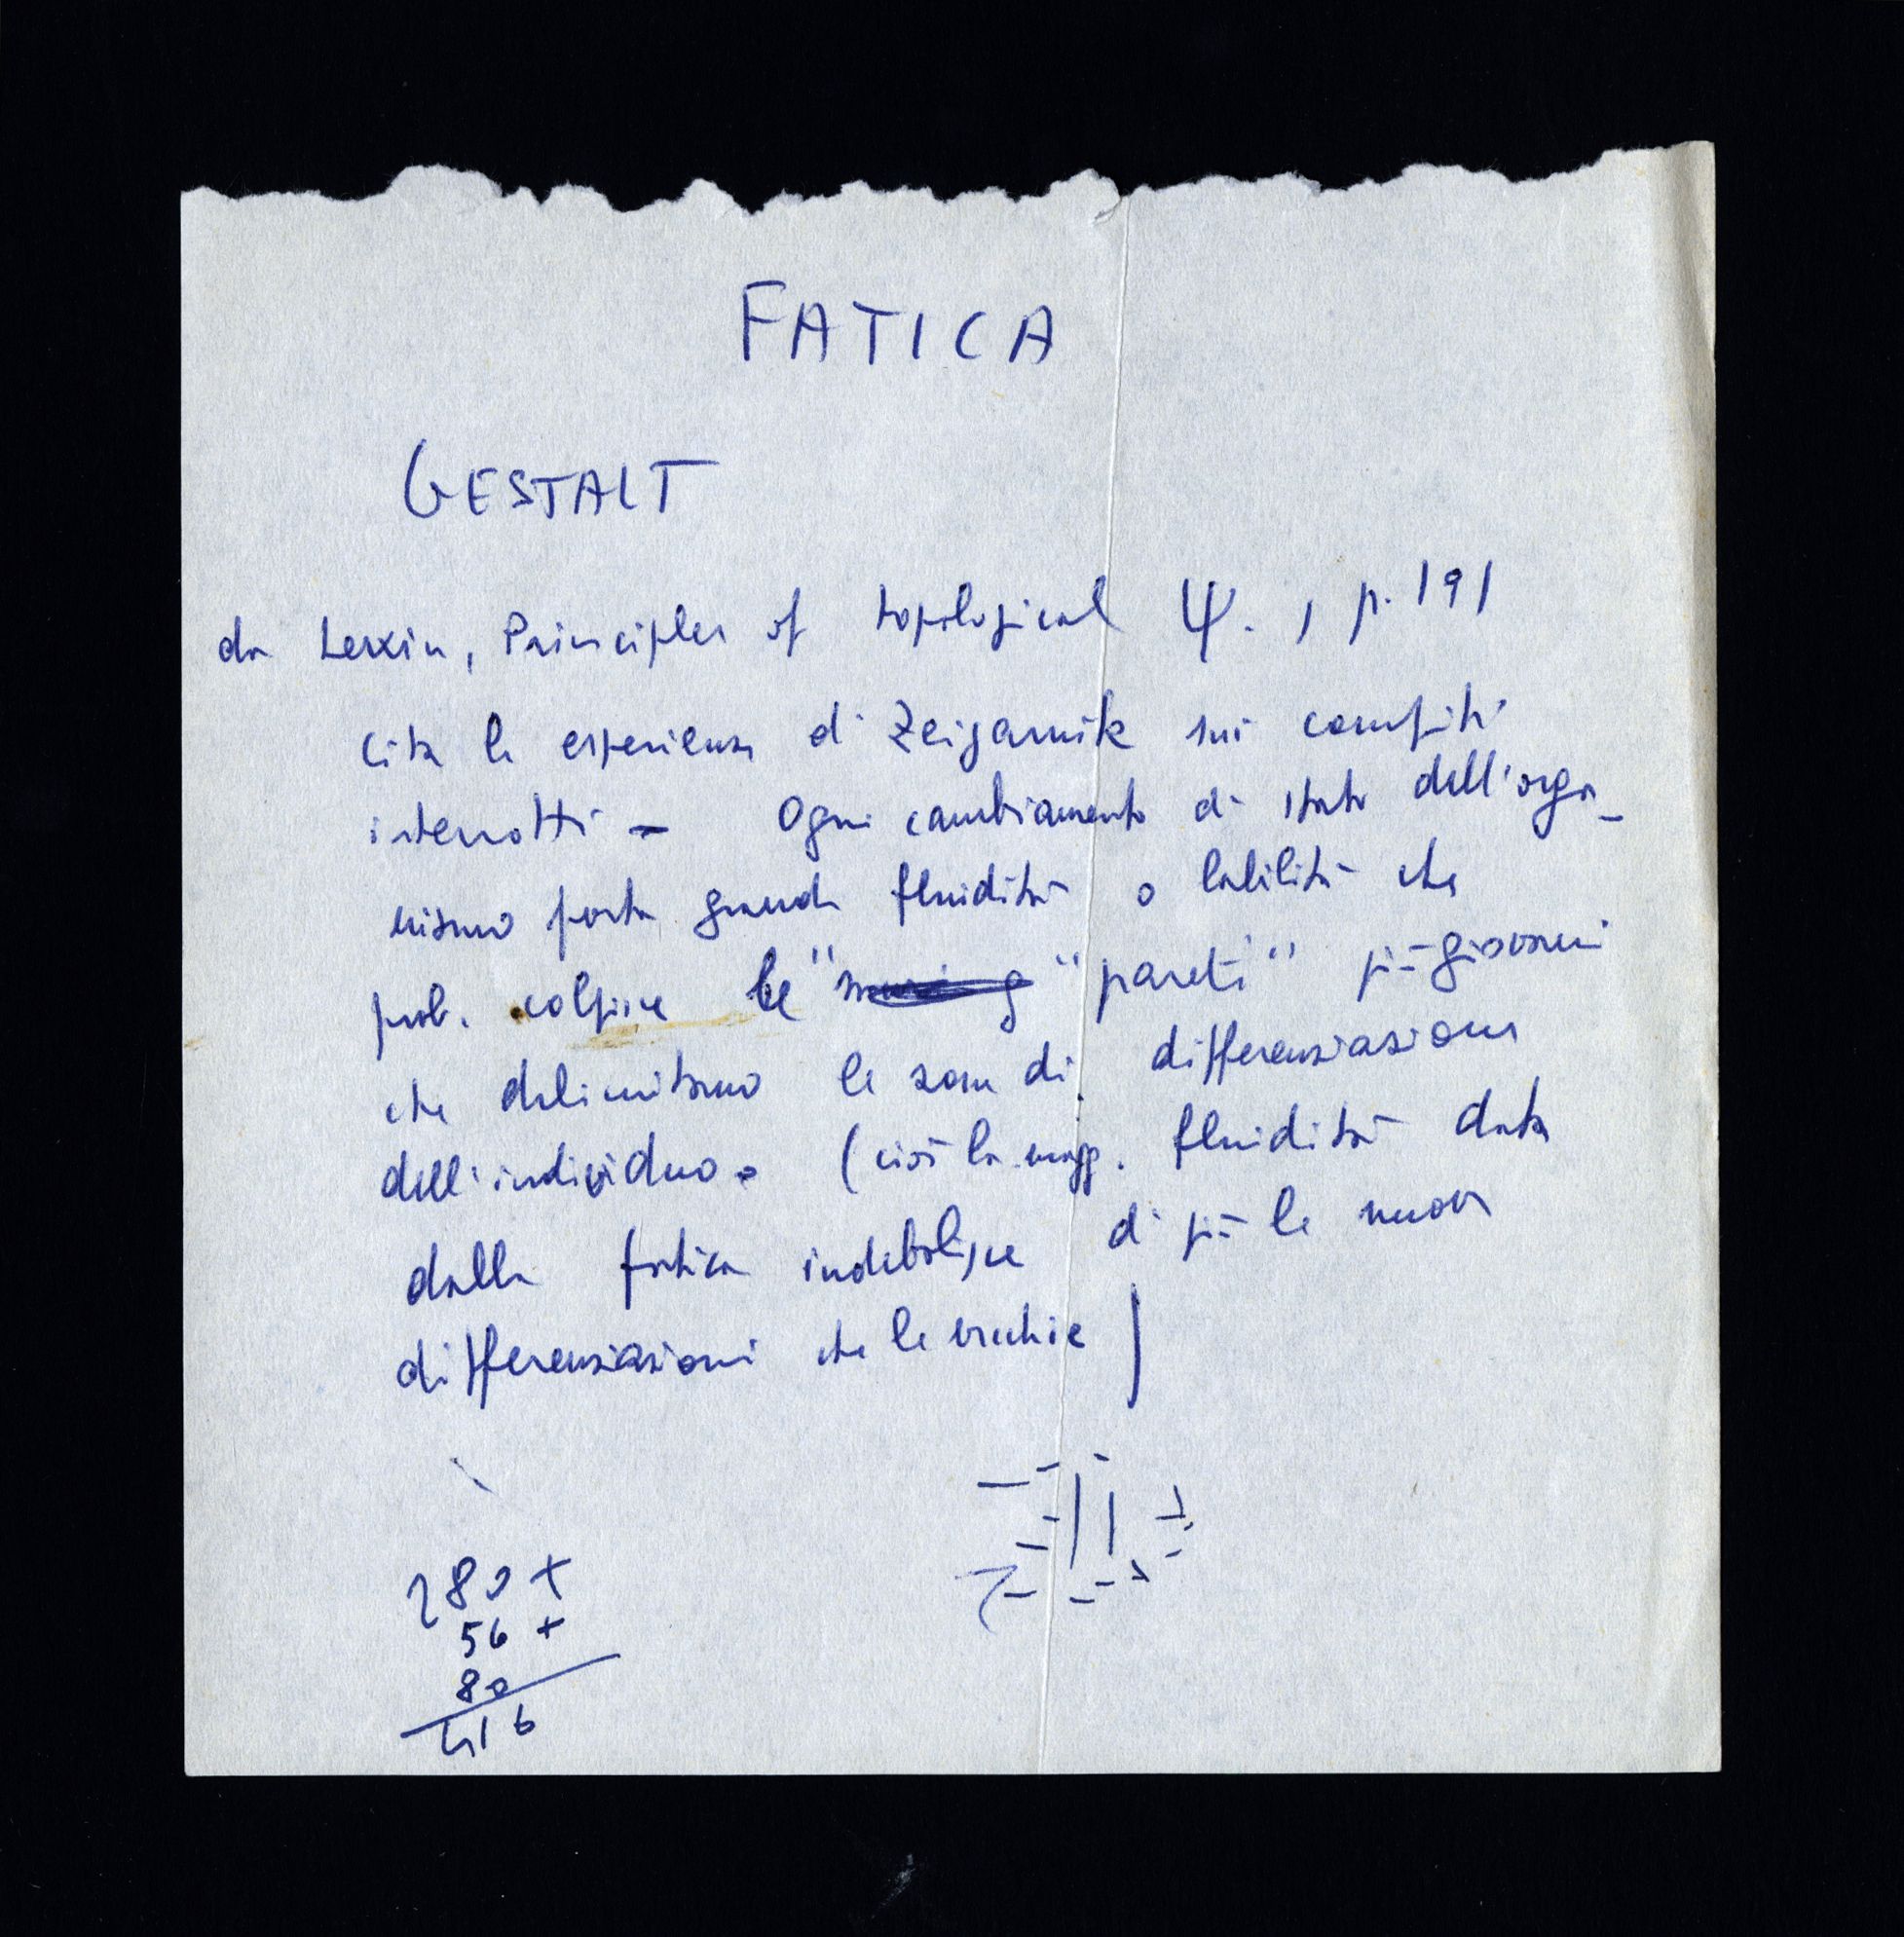 FATICA
GESTALT
da Lewin, Principles of topological Ψ. , p. 191
Cita le esperienze di Zeigarnik sui compiti
interrotti - Ogni cambiamento di stato dell'orga-
nismo porta grande fluidità o labilità che
prob. colpisce le " "pareti" più giovani
che delimitano le zone di differenziazione
dell'individuo. (cioè la magg. fluidità data
dalla fatica indebolisce di più le nuove
differenziazioni che le vecchie)
280 +
56 +
80
416